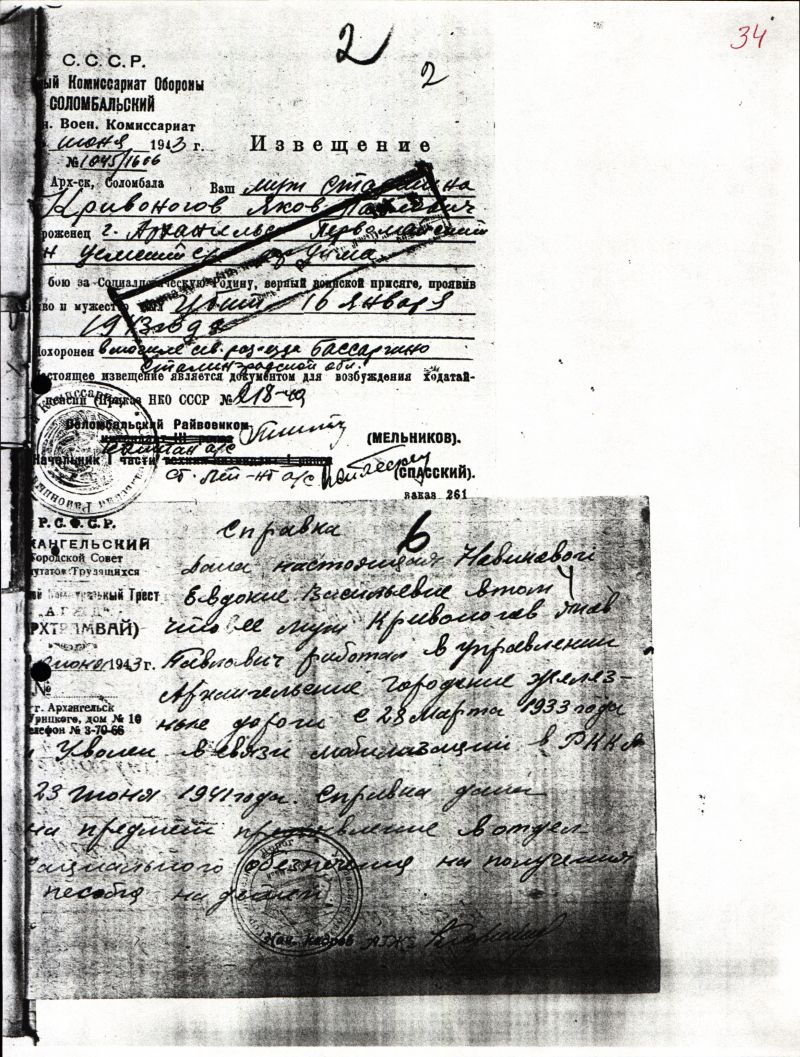 34
2
2
С. С. С. Р.
ый Комиссариат Обороны
СОЛОМБАЛЬСКИЙ
н. Воен. Комиссариат
июня 1943 г.
№ 1045/1606
Извещение
Арх-ск, Соломбала
Ваш муж старшина
Кривоногов Яков Павлович
роженец г. Архангельск Первомайский
н Уемский Уйма
бою за Социалистическую Родину, верный воинской присяге, проявив
во и мужество, был убит 16 января
1943 года
Похоронен в могиле сев. раз-езда Бассаргино
Сталинградской обл.
Настоящее извещение является документом для возбуждения ходатай-
пенсии (Приказ НКО СССР № 218-
Соломбальский Райвоенком
капитан а/с
(МЕЛЬНИКОВ).
Начальник I части
ст. лейт-нт а/с
(СПАССКИЙ).
заказ 261
Р.С.Ф.С.Р.
ХАНГЕЛЬСКИЙ
Городской Совет
путатов Трудящихся
ый Коммунальный Трест
„А.Г.Ж.Д."
РХТРАМВАЙ)
июня 1943 г.
№
г. Архангельск
Урицкого, дом № 10
елефон № 3-70-66
Справка
6
Дана настоящая Новиковой
Евдокие Васильевне в том
что ее муж Кривоногов Яков
Павлович работал в управлении
Архангельские городские желез-
ные дороги с 28 Марта 1933 года
и Уволен в связи мобилизаций в РККА
23 Июня 1941 года. Справка дана
на предмет предъявление в отдел
социального обезпечения на получения
пособия на детей
Нач. кадров АГЖД